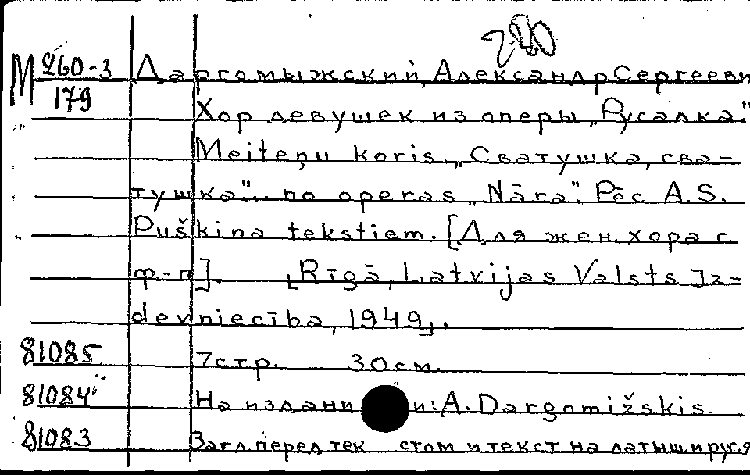 220
М 260-3 Даргомыжский, Александр Сергееви
179 Хор девушек из оперы „Русалка."
Meiteņu koris „Сватушка, сва-
тушка"... no operas „Nāra". Pēc A.S.
Puškina tekstiem. [Для жен. хора с
ф-п]. [Rīgā, Latvijas Valsts Iz-
devniecība, 1949].
81085 7стр. 30см.
81084 На издани и: A. Dargomižskis.
81083 Загл. перед тек стом и текст на латыш. и рус. я